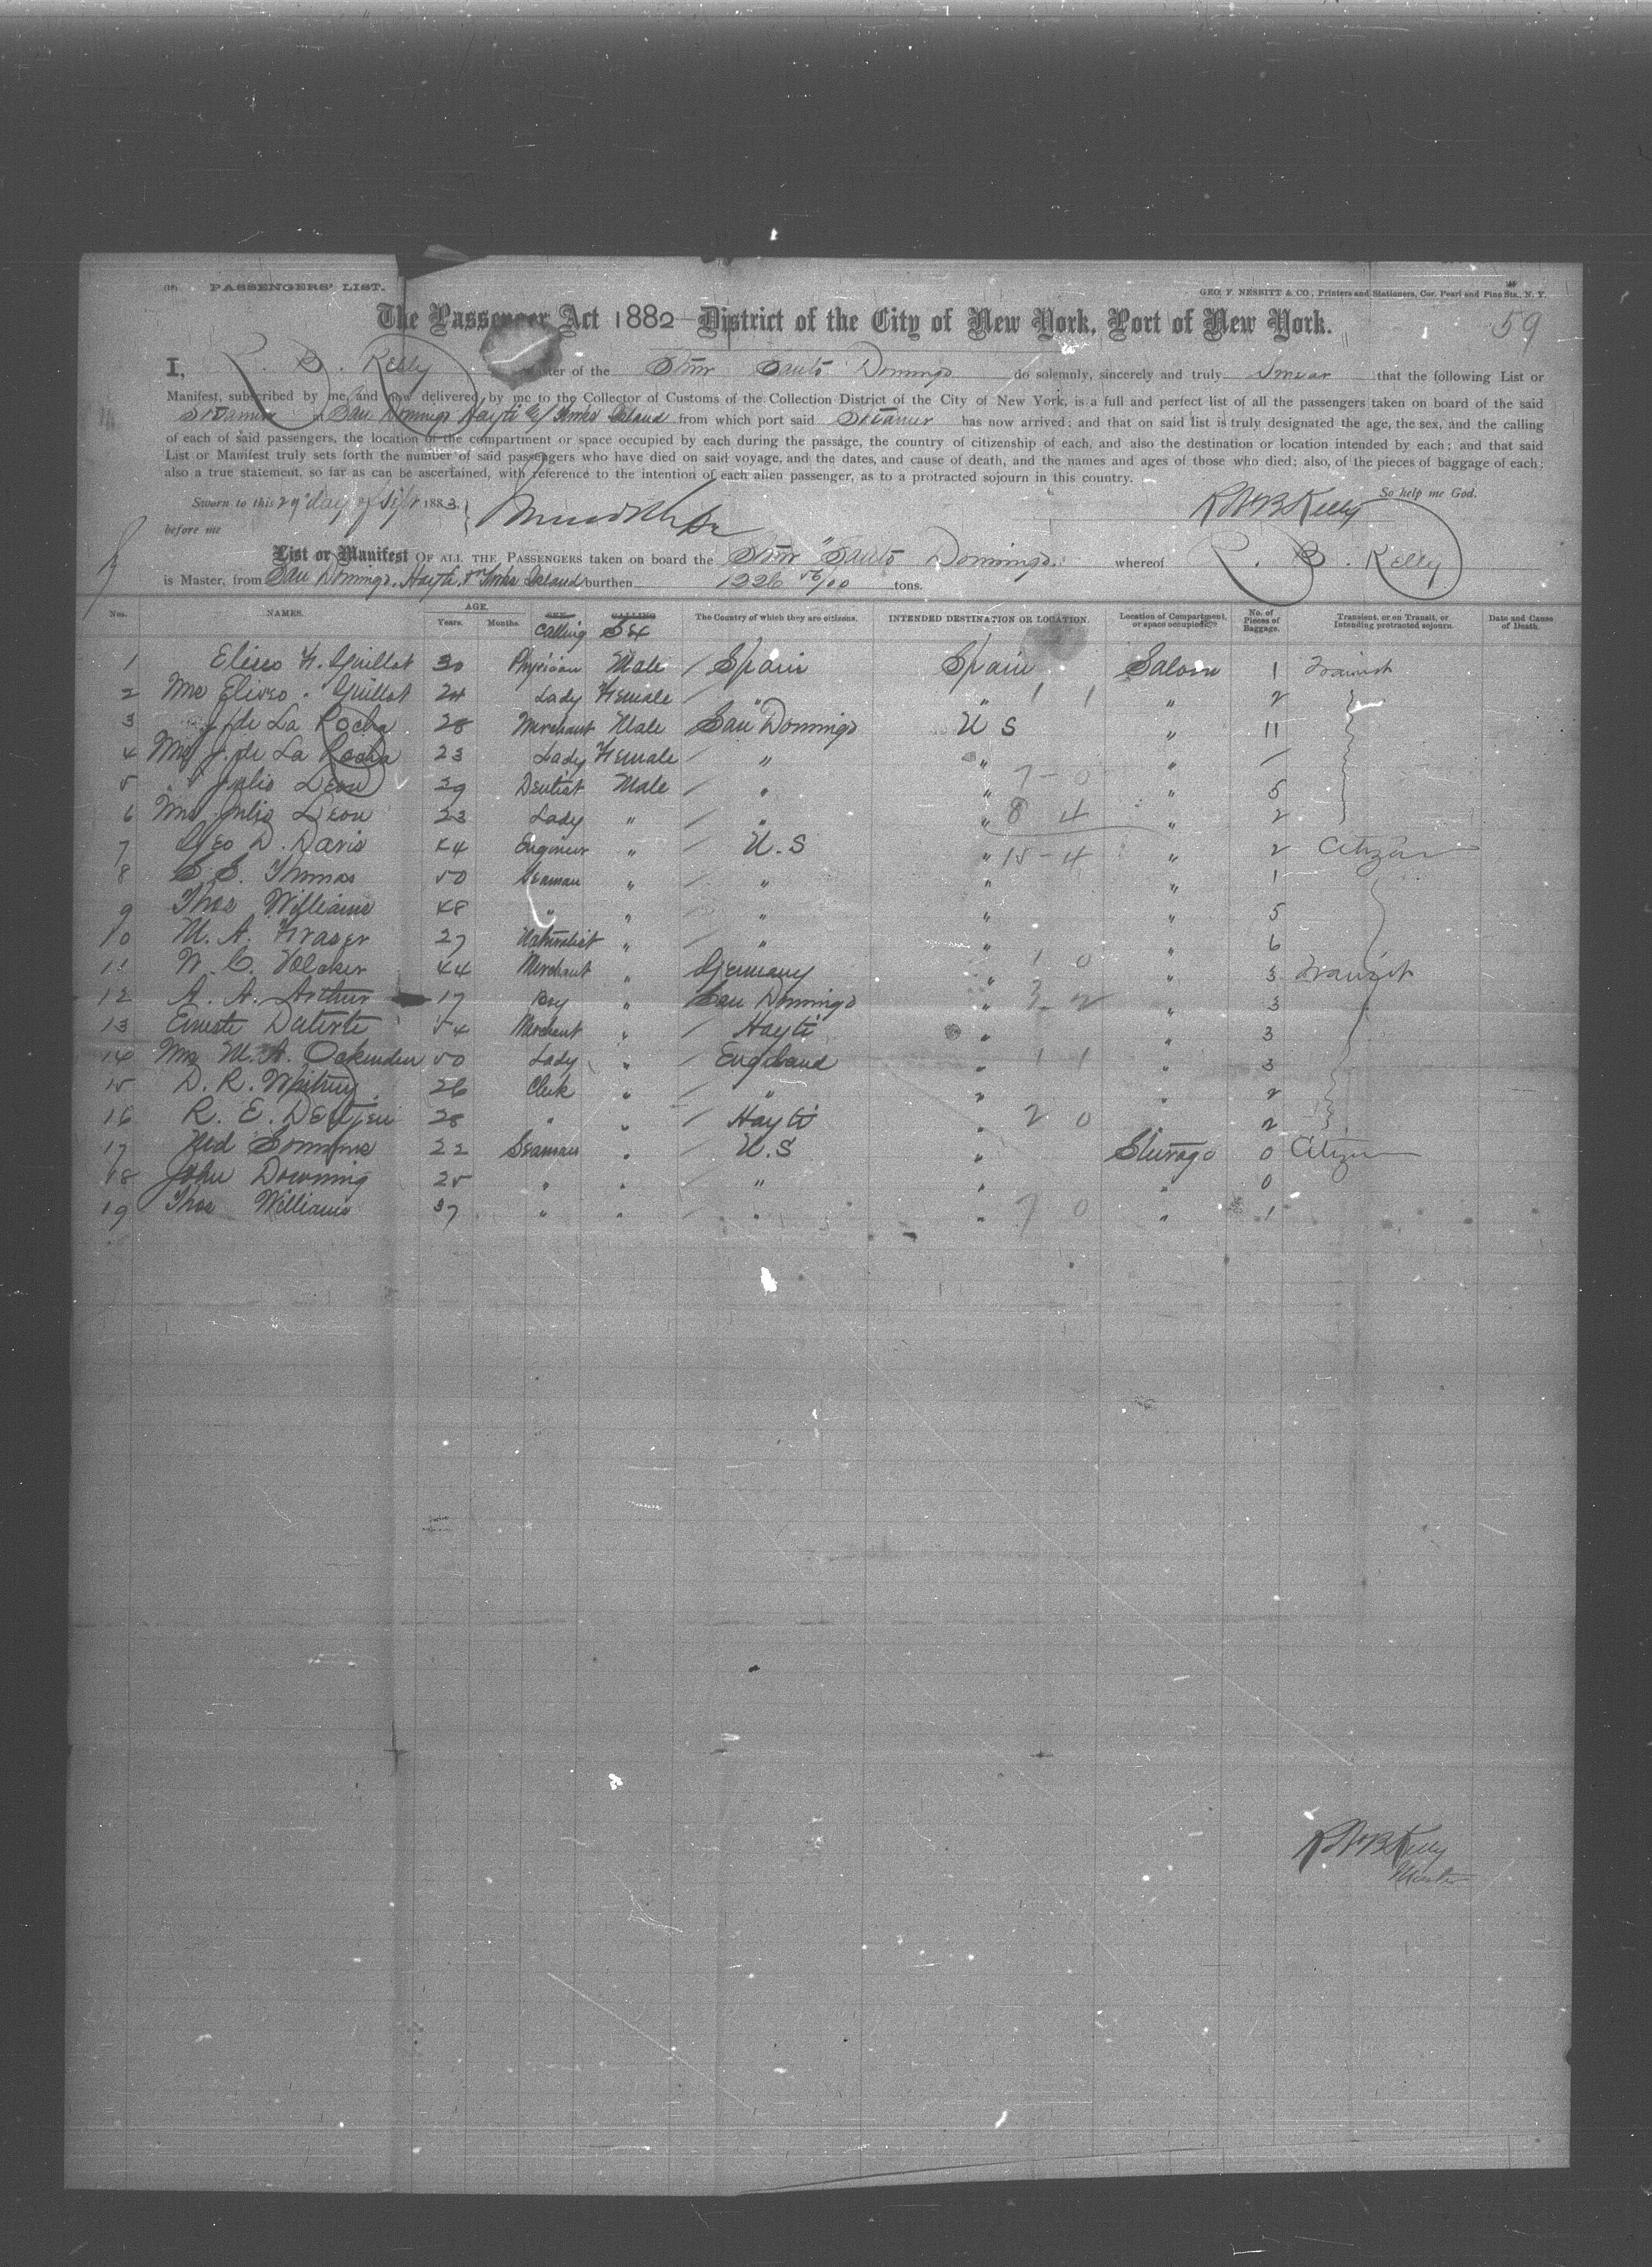 (18) PASSENGERS' LIST.
GEO. F. NESBITT & CO., Printers and Stationers, Cor. Pearl and Pine Sts., N. Y.
The Passenger Act 1882 District of the City of New York, Port of New York. 59
I, R. B. Kelly Master of the Stmr Santo Domingo do solemnly, sincerely and truly swear that the following List or
Manifest, subscribed by me, and now delivered by me to the Collector of Customs of the Collection District of the City of New York, is a full and perfect list of all the passengers taken on board of the said
Steamer San Domingo Hayti & Turks Island from which port said Steamer has now arrived; and that on said list is truly designated the age, the sex, and the calling
of each of said passengers, the location of the compartment or space occupied by each during the passage, the country of citizenship of each, and also the destination or location intended by each; and that said
List or Manifest truly sets forth the number of said passengers who have died on said voyage, and the dates, and cause of death, and the names and ages of those who died; also, of the pieces of baggage of each;
also a true statement, so far as can be ascertained, with reference to the intention of each alien passenger, as to a protracted sojourn in this country.
Sworn to this 29 day of Sept 1883. So help me God.
before me RWB Kelly
List or Manifest OF ALL THE PASSENGERS taken on board the Stmr "Santo Domingo whereof R. B. Kelly
is Master, from San Domingo, Hayti & Turks Island burthen 1226 56/100 tons.
Nos. NAMES. AGE. Years. Months. SEX CALLING The Country of which they are citizens. INTENDED DESTINATION OR LOCATION. Location of Compartment, or space occupied. No. of Pieces of Baggage. Transient, or on Transit, or Intending protracted sojourn. Date and Cause of Death.
Calling Sex
1 Eliseo F. Guillot 30 Physician Male / Spain Spain Saloon 1 Transit
2 Mrs Eliseo Guillot 24 Lady Female / " " 1 1 " 2
3 J. de La Rocha 28 Merchant Male San Domingo U S " 11
4 Mrs J. de La Rocha 23 Lady Female / " " " /
5 " Julio Leon 29 Dentist Male / " " 7-0 " 5
6 Mrs Julio Leon 23 Lady " / " " 8 4 " 2
7 Geo D. Davis 44 Engineer " / U.S " 15-4 " 2 Citizen
8 Thomas 50 Seaman " / " " " 1
9 Thos Williams 48 " " / " " " 5
10 M. A. Frazer 27 Naturalist " / " " " 6
11 Volcker 44 Merchant " Germany " 1 0 " 3 Transit
12 A. A. Arthur 17 Boy " San Domingo " 3-2 " 3
13 Erneste 54 Merchant " / Hayti " " 3
14 Mrs M. A. Oakenden 50 Lady " / England " 1 1 " 3
15 D. R. Whitney 26 Clerk " / " " " 2
16 R. E. Detjen 28 " " / Hayti " 2 0 " 2
17 Ned Simmons 22 Seaman " / U.S " Steerage 0 Citizen
18 John Downing 25 " " / " " " 0
19 Thos Williams 37 " " / " " 7 0 " 1
RWB Kelly
Master